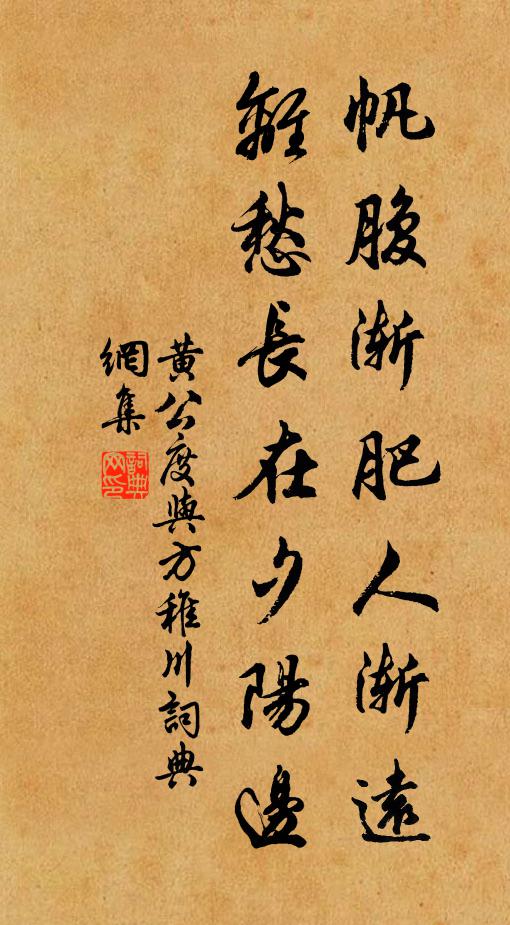 帆腹漸肥人漸遠
離愁長在夕陽邊
黃公度與方稚川詞典
網集
詞典網印